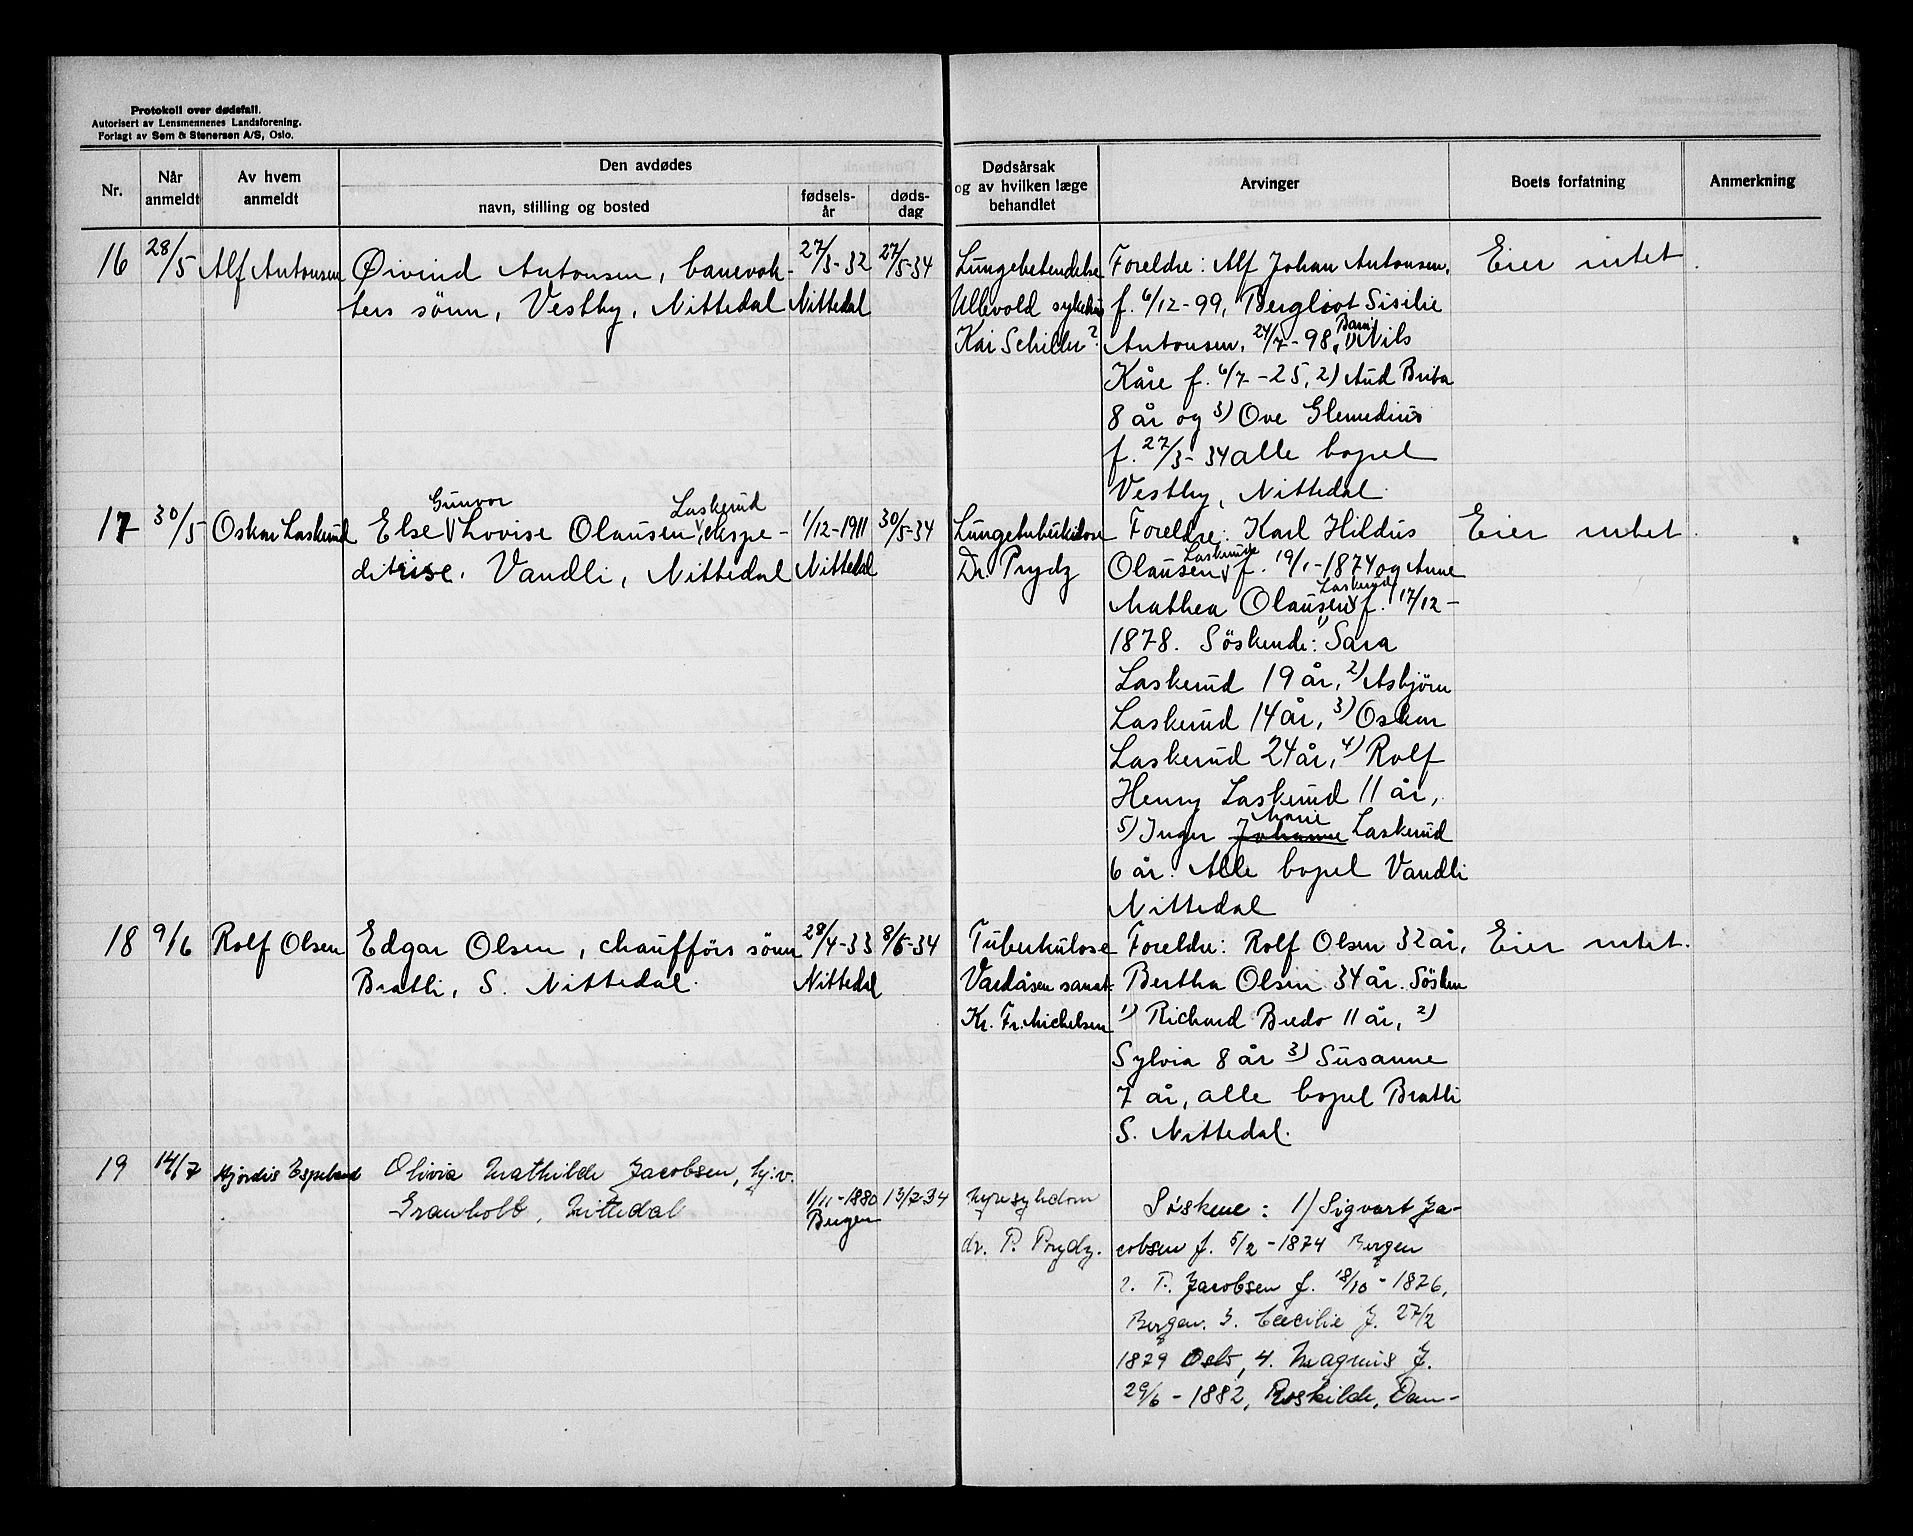 Protokoll over dødsfall.
Autorisert av Lensmennenes Landsforening.
Forlagt av Sem & Stenersen A/S, Oslo.
Nr.
Når anmeldt
Av hvem anmeldt
Den avdødes
navn, stilling og bosted
fødsels-år
døds-dag
Dødsårsak og av hvilken læge behandlet
Arvinger
Boets forfatning
Anmerkning
16 28/5 Alf Antonsen Øivind Antonsen, banevok- 27/3-32 27/5-34 Lungebetendelse Foreldre: Alf Johan Antonsen, Eier intet.
ters sønn, Vestby, Nittedal Nittedal Ullevold sykehus f. 6/12-99, Bergliot Sisilie
Kai Schiller? Antonsen, 24/7-98, Barn: 1) Nils
Kåre f. 6/7-25, 2) Aud Brita
8 år og 3) Ove Glemedius
f. 27/3-34 alle bopel
Vestby, Nittedal.
Gunvor Laskerud
17 30/5 Oskar Laskerud Else V Lovise Olausen V, ekspe- 1/12-1911 30/5-34 Lungetuberkulose Foreldre: Karl Hildus Eier intet.
ditrise. Vandli, Nittedal Nittedal Dr. Prydz Olausen V Laskerud f. 19/1-1874 og Anna
Mathea Olausen V Laskerud f. 17/12-
1878. Söskende: 1) Sara
Laskerud 19 år, 2) Asbjörn
Laskerud 14 år, 3) Oskar
Laskerud 24 år, 4) Rolf
Henry Laskerud 11 år,
Marie
5) Inger Johanne Laskerud
6 år. Alle bopel Vandli
Nittedal
18 9/6 Rolf Olsen Edgar Olsen, chaufførs sønn 28/4-33 8/6-34 Tuberkulose Foreldre: Rolf Olsen 32 år, Eier intet.
Bratli, S. Nittedal. Nittedal Vardåsen sanat. Bertha Olsen 34 år. Sösken
Kr. Fr. Michelsen 1) Richard Bredo 11 år, 2)
Sylvia 8 år 3) Susanne
7 år, alle bopel Bratli
S. Nittedal.
19 14/7 Hjørdis Espeland Olivia Mathilde Jacobsen, hj.v.
Granholt, Nittedal 1/11-1880 13/7-34 Nyresykdom Søskene: 1) Sigvart Ja-
Bergen dr. P. Prydz. cobsen f. 5/2-1874 Bergen
2. T. Jacobsen f. 18/10-1876,
Bergen. 3. Cecilie J. 27/2
1879 Oslo, 4. Magnus J.
29/6-1882, Roskilde, Dan-